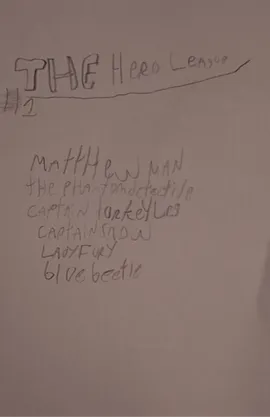 THE Hero League
#1
Matthew MAN
the phantomdetective
CAPTAIN torkeyLeg
CAPTAINSNOW
LADYFURY
blue beetle